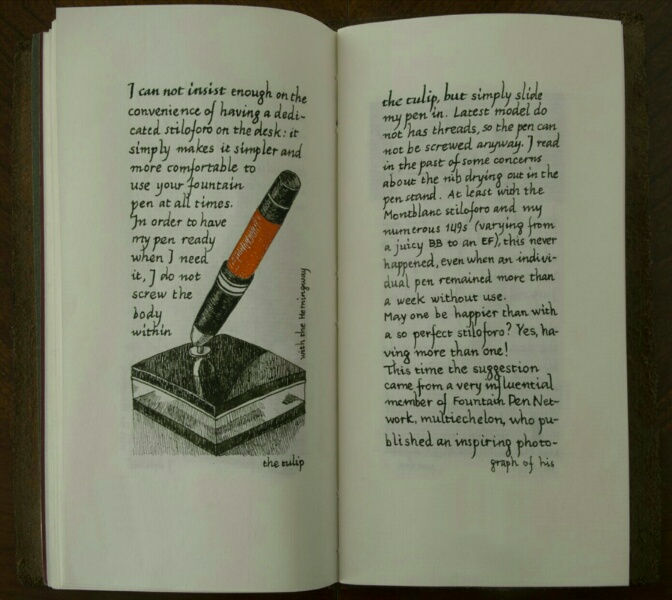 I can not insist enough on the
convenience of having a dedi-
cated stiloforo on the desk: it
simply makes it simpler and
more comfortable to
use your fountain
pen at all times.
In order to have
my pen ready
when I need
it, I do not
screw the
body
within
with the Hemingway
the tulip
the tulip, but simply slide
my pen in. Latest model do
not has threads, so the pen can
not be screwed anyway. I read
in the past of some concerns
about the nib drying out in the
pen stand. At least with the
Montblanc stiloforo and my
numerous 149s (varying from
a juicy BB to an EF), this never
happened, even when an indivi-
dual pen remained more than
a week without use.
May one be happier than with
a so perfect stiloforo? Yes, ha-
ving more than one!
This time the suggestion
came from a very influential
member of Fountain Pen Net-
work, multiechelon, who pu-
blished an inspiring photo-
graph of his